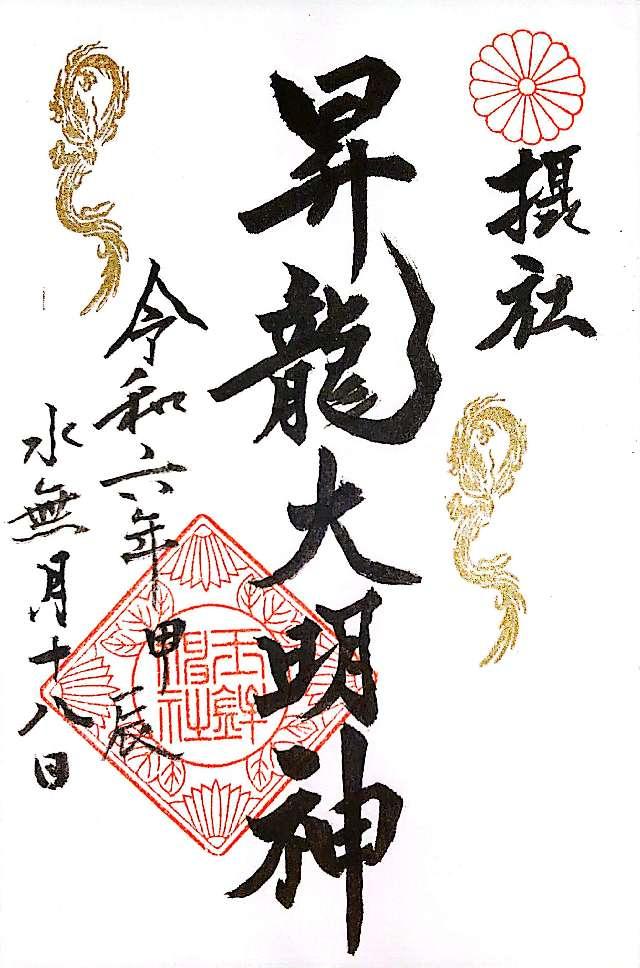 摂社
昇龍大明神
令和六年甲辰
水無月十八日